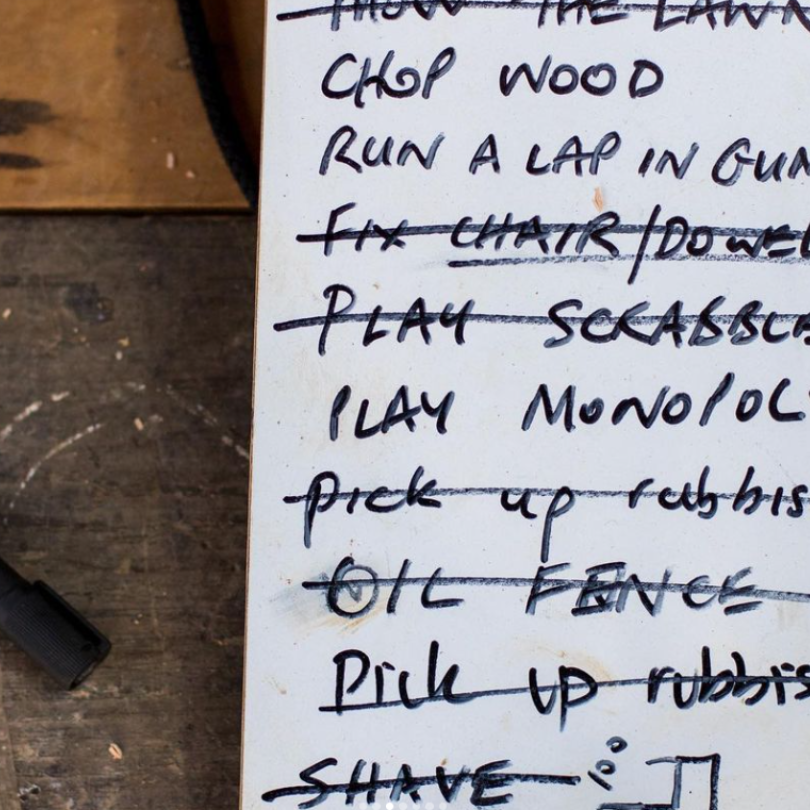 MOW THE LAWN
CHOP WOOD
RUN A LAP IN GUM
FIX CHAIR/DOWEL
PLAY SCRABBLE
PLAY MONOPOL
pick up rubbis
OIL FENCE
Pick up rubbis
SHAVE